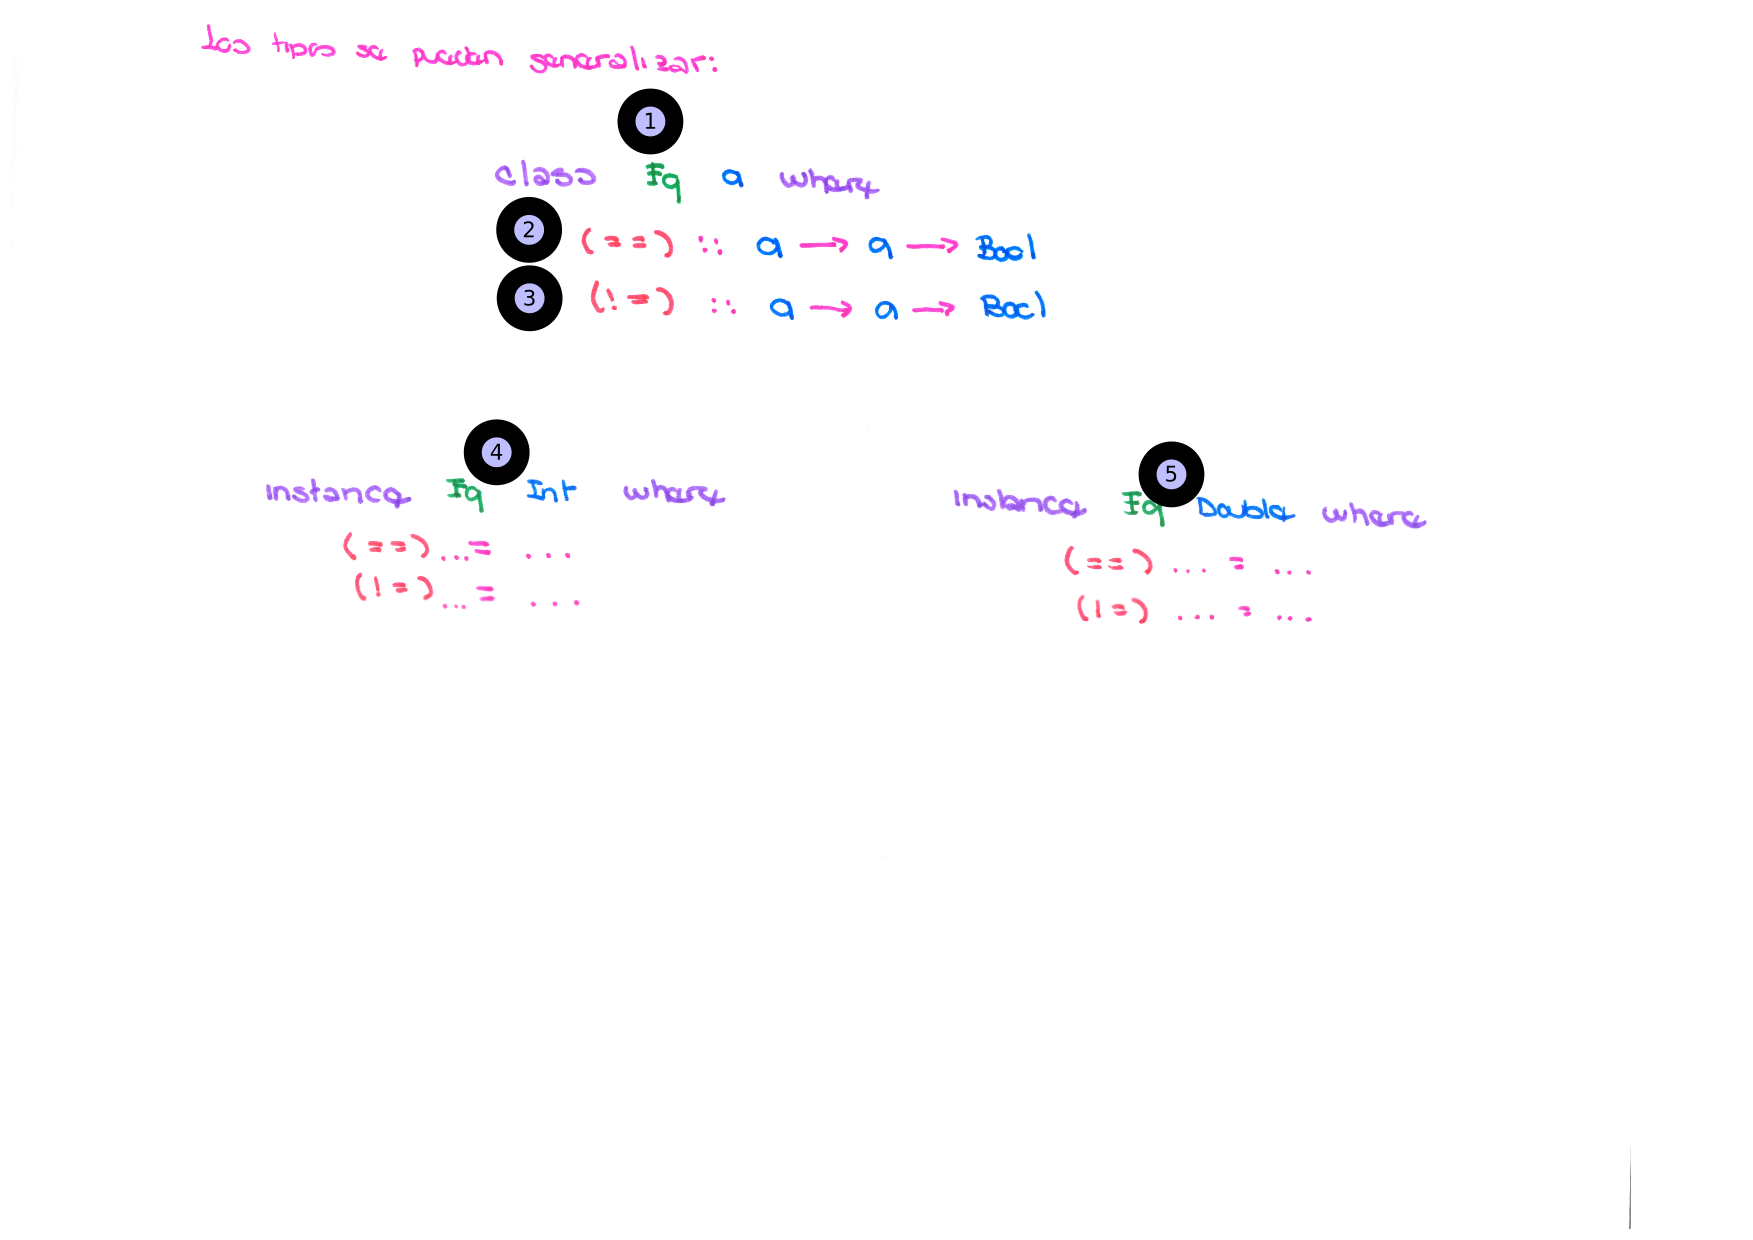 Los tipos se pueden generalizar:
1
class Eq a where
2 (==) :: a → a → Bool
3 (!=) :: a → a → Bool
4
instance Eq Int where
(==) ... = ...
(!=) ... = ...
5
instance Eq Double where
(==) ... = ...
(!=) ... = ...